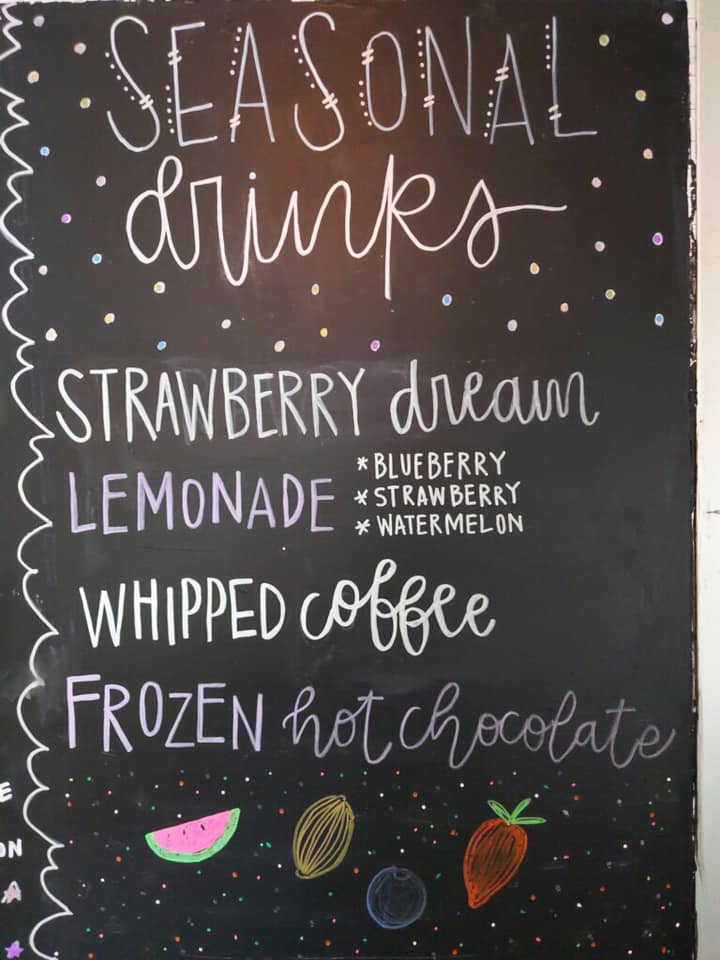 SEASONAL
drinks
STRAWBERRY dream
LEMONADE
*BLUEBERRY
*STRAWBERRY
*WATERMELON
WHIPPED coffee
FROZEN hot chocolate
E
ON